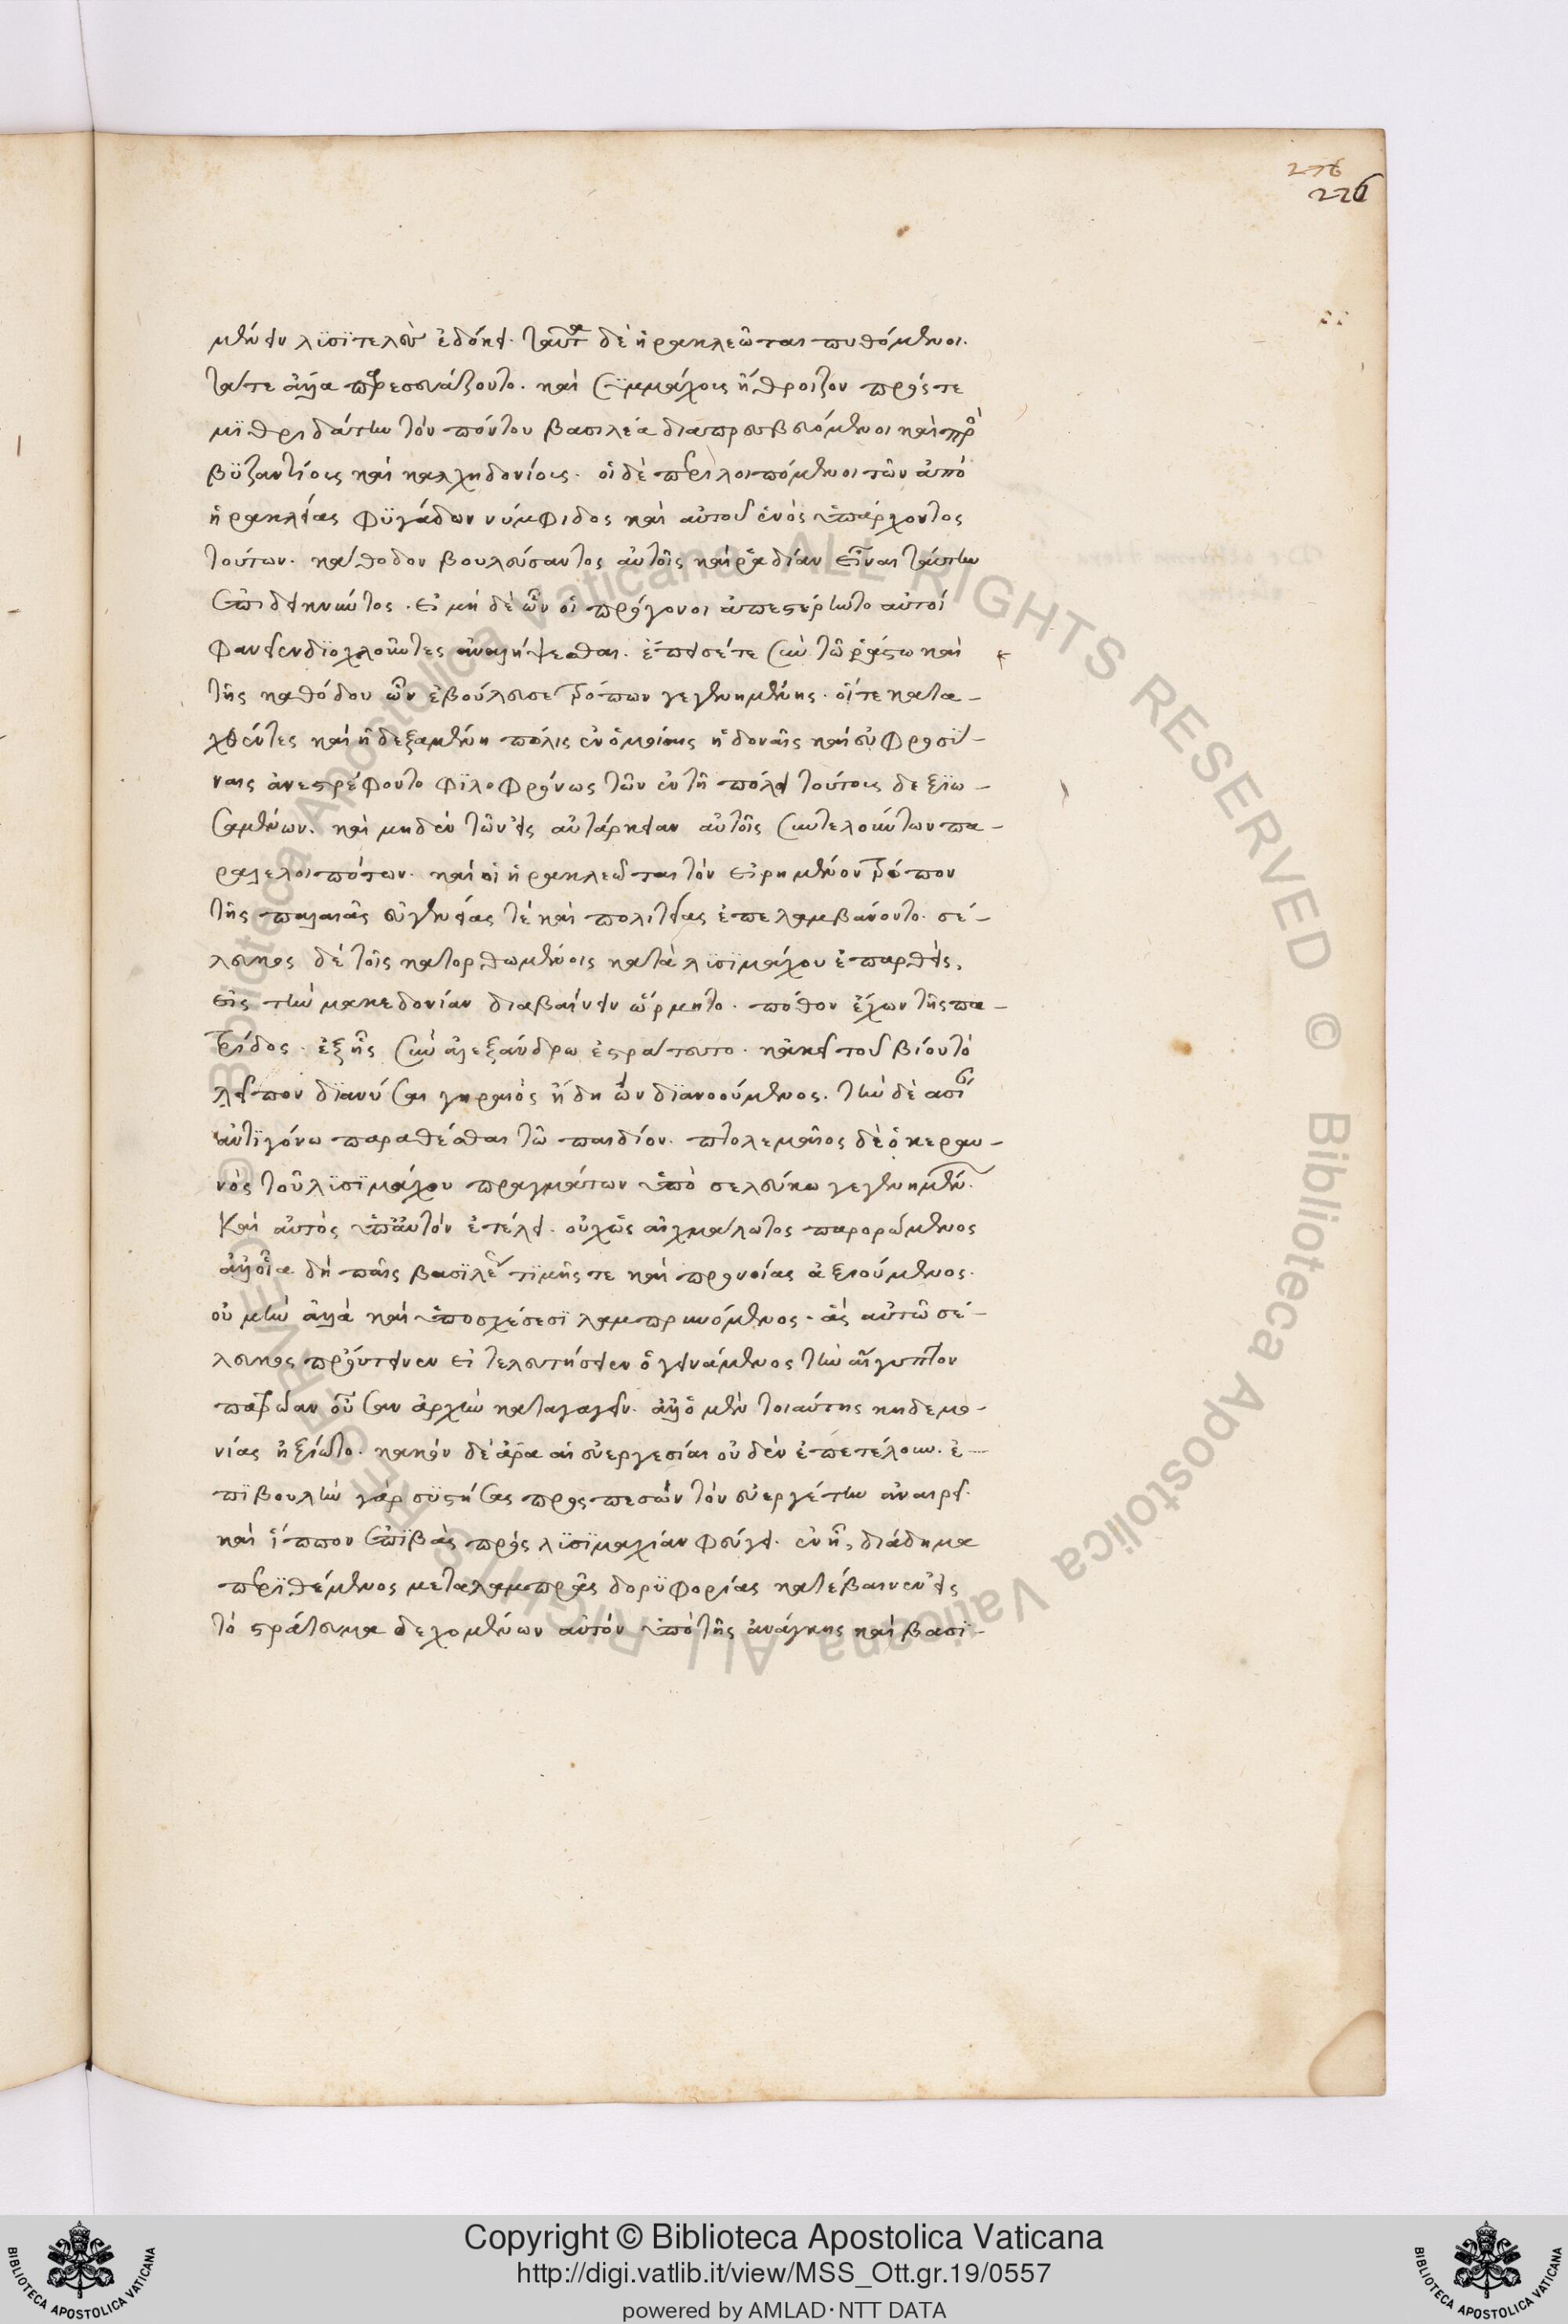 276
226
μένειν λϋσϊτελεῖν ἐδόκει. ταῦτα δὲ ἡρακλεῶται πυθόμενοι.
τά τε ἄλλα παρεσκευάζοντο. καὶ συμμάχους ἤθροιζον πρός τε
μϊθριδάτην τὸν πόντου βασιλέα διαπρεσβευόμενοι καὶ πρὸς
βϋζαντίους καὶ καλχηδονίους. οἱ δὲ περιλοιπόμενοι τῶν ἀπὸ
ἡρακλείας φϋγάδων νύμφιδος καὶ αὐτοῦ ἑνὸς ὑπάρχοντος
τούτων. κάθοδον βουλεύσαντος αὐτοῖς καὶ ῥαδίαν εἶναι ταύτην
ἐπιδεικνύντος. εἰ μὴ δὲ ὧν οἱ πρόγονοι ἀπεστέρηντο αὐτοὶ
φανεῖεν διοχλοῦντες ἀναλήψεσθαι. ἔπεισέ τε σὺν τῷ ῥάστῳ καὶ
τῆς καθόδου ὧν ἐβούλευσε τρόπων γεγενημένης. οἵ τε κατα-
χθέντες καὶ ἡ δεξαμένη πόλις ἐν ὁμοίαις ἡδοναῖς καὶ εὐφροσύ-
ναις ἀνεστρέφοντο φϊλοφρόνως τῶν ἐν τῇ πόλει τούτους δεξϊω-
σαμένων. καὶ μηδὲν τῶν εἰς αὐτάρκειαν αὐτοῖς συντελούντων πα-
ραλελοιπότων. καὶ οἱ ἡρακλεῶται τὸν εἰρημένον τρόπον
τῆς παλαιᾶς εὐγενείας τέ καὶ πολιτείας ἐπελαμβάνοντο. σέ-
λευκος δὲ τοῖς κατορθωμένοις κατὰ λυσϊμάχου ἐπαρθείς,
εἰς τὴν μακεδονίαν διαβαίνειν ὥρμητο. πόθον ἔχων τῆς πα-
τρίδος. ἐξ ἧς σὺν ἀλεξάνδρῳ ἐστρατεύετο. κἀκεῖ τοῦ βίου τὸ
λεῖπον διανύσαι γηραιὸς ἤδη ὢν διανοούμενος. τὴν δὲ ασί
ἀντϊγόνῳ παραθέσθαι τῷ παιδίον. πτολεμαῖος δὲ ὁ κεραυ-
νὸς τοῦ λϋσϊμάχου πραγμάτων ὑπὸ σελεύκῳ γεγενημένων.
καὶ αὐτὸς ὑπ' αὐτὸν ἐτέλει. οὐχ ὡς αἰχμάλωτος παρορώμενος
ἀλλ' οἷα δὴ παῖς βασϊλέως τϊμῆς τε καὶ προνοίας ἀξιούμενος.
οὐ μὴν ἀλλὰ καὶ ὑποσχέσεσϊ λαμπρυνόμενος. ἃς αὐτῷ σέ-
λευκος προύτεινεν εἰ τελευτήσειεν ὁ γεινάμενος τὴν αἴγυπτον
πατρῴαν οὖσαν ἀρχὴν καταγαγεῖν. ἀλλ' ὁ μὲν τοιαύτης κηδεμο-
νίας ἠξίωτο. κακὸν δὲ ἄρα αἱ εὐεργεσίαι οὐδὲν ἐπετέλουν. ἐ-
πϊβουλὴν γὰρ συστήσας προσπεσὼν τὸν εὐεργέτην ἀναιρεῖ.
καὶ ἵππον ἐπϊβὰς πρὸς λϋσϊμαχίαν φεύγει. ἐν ᾗ, διάδημα
περϊθέμενος μετὰ λαμπρᾶς δορϋφορίας κατέβαινεν εἰς
τὸ στράτευμα δεχομένων αὐτὸν ὑπὸ τῆς ἀνάγκης καὶ βασϊ-
© Biblioteca Apostolica Vaticana ALL RIGHTS RESERVED © Biblioteca Apostolica Vaticana ALL RIGHTS RESERVED
Copyright © Biblioteca Apostolica Vaticana
http://digi.vatlib.it/view/MSS_Ott.gr.19/0557
powered by AMLAD·NTT DATA
BIBLIOTECA APOSTOLICA VATICANA
BIBLIOTECA APOSTOLICA VATICANA